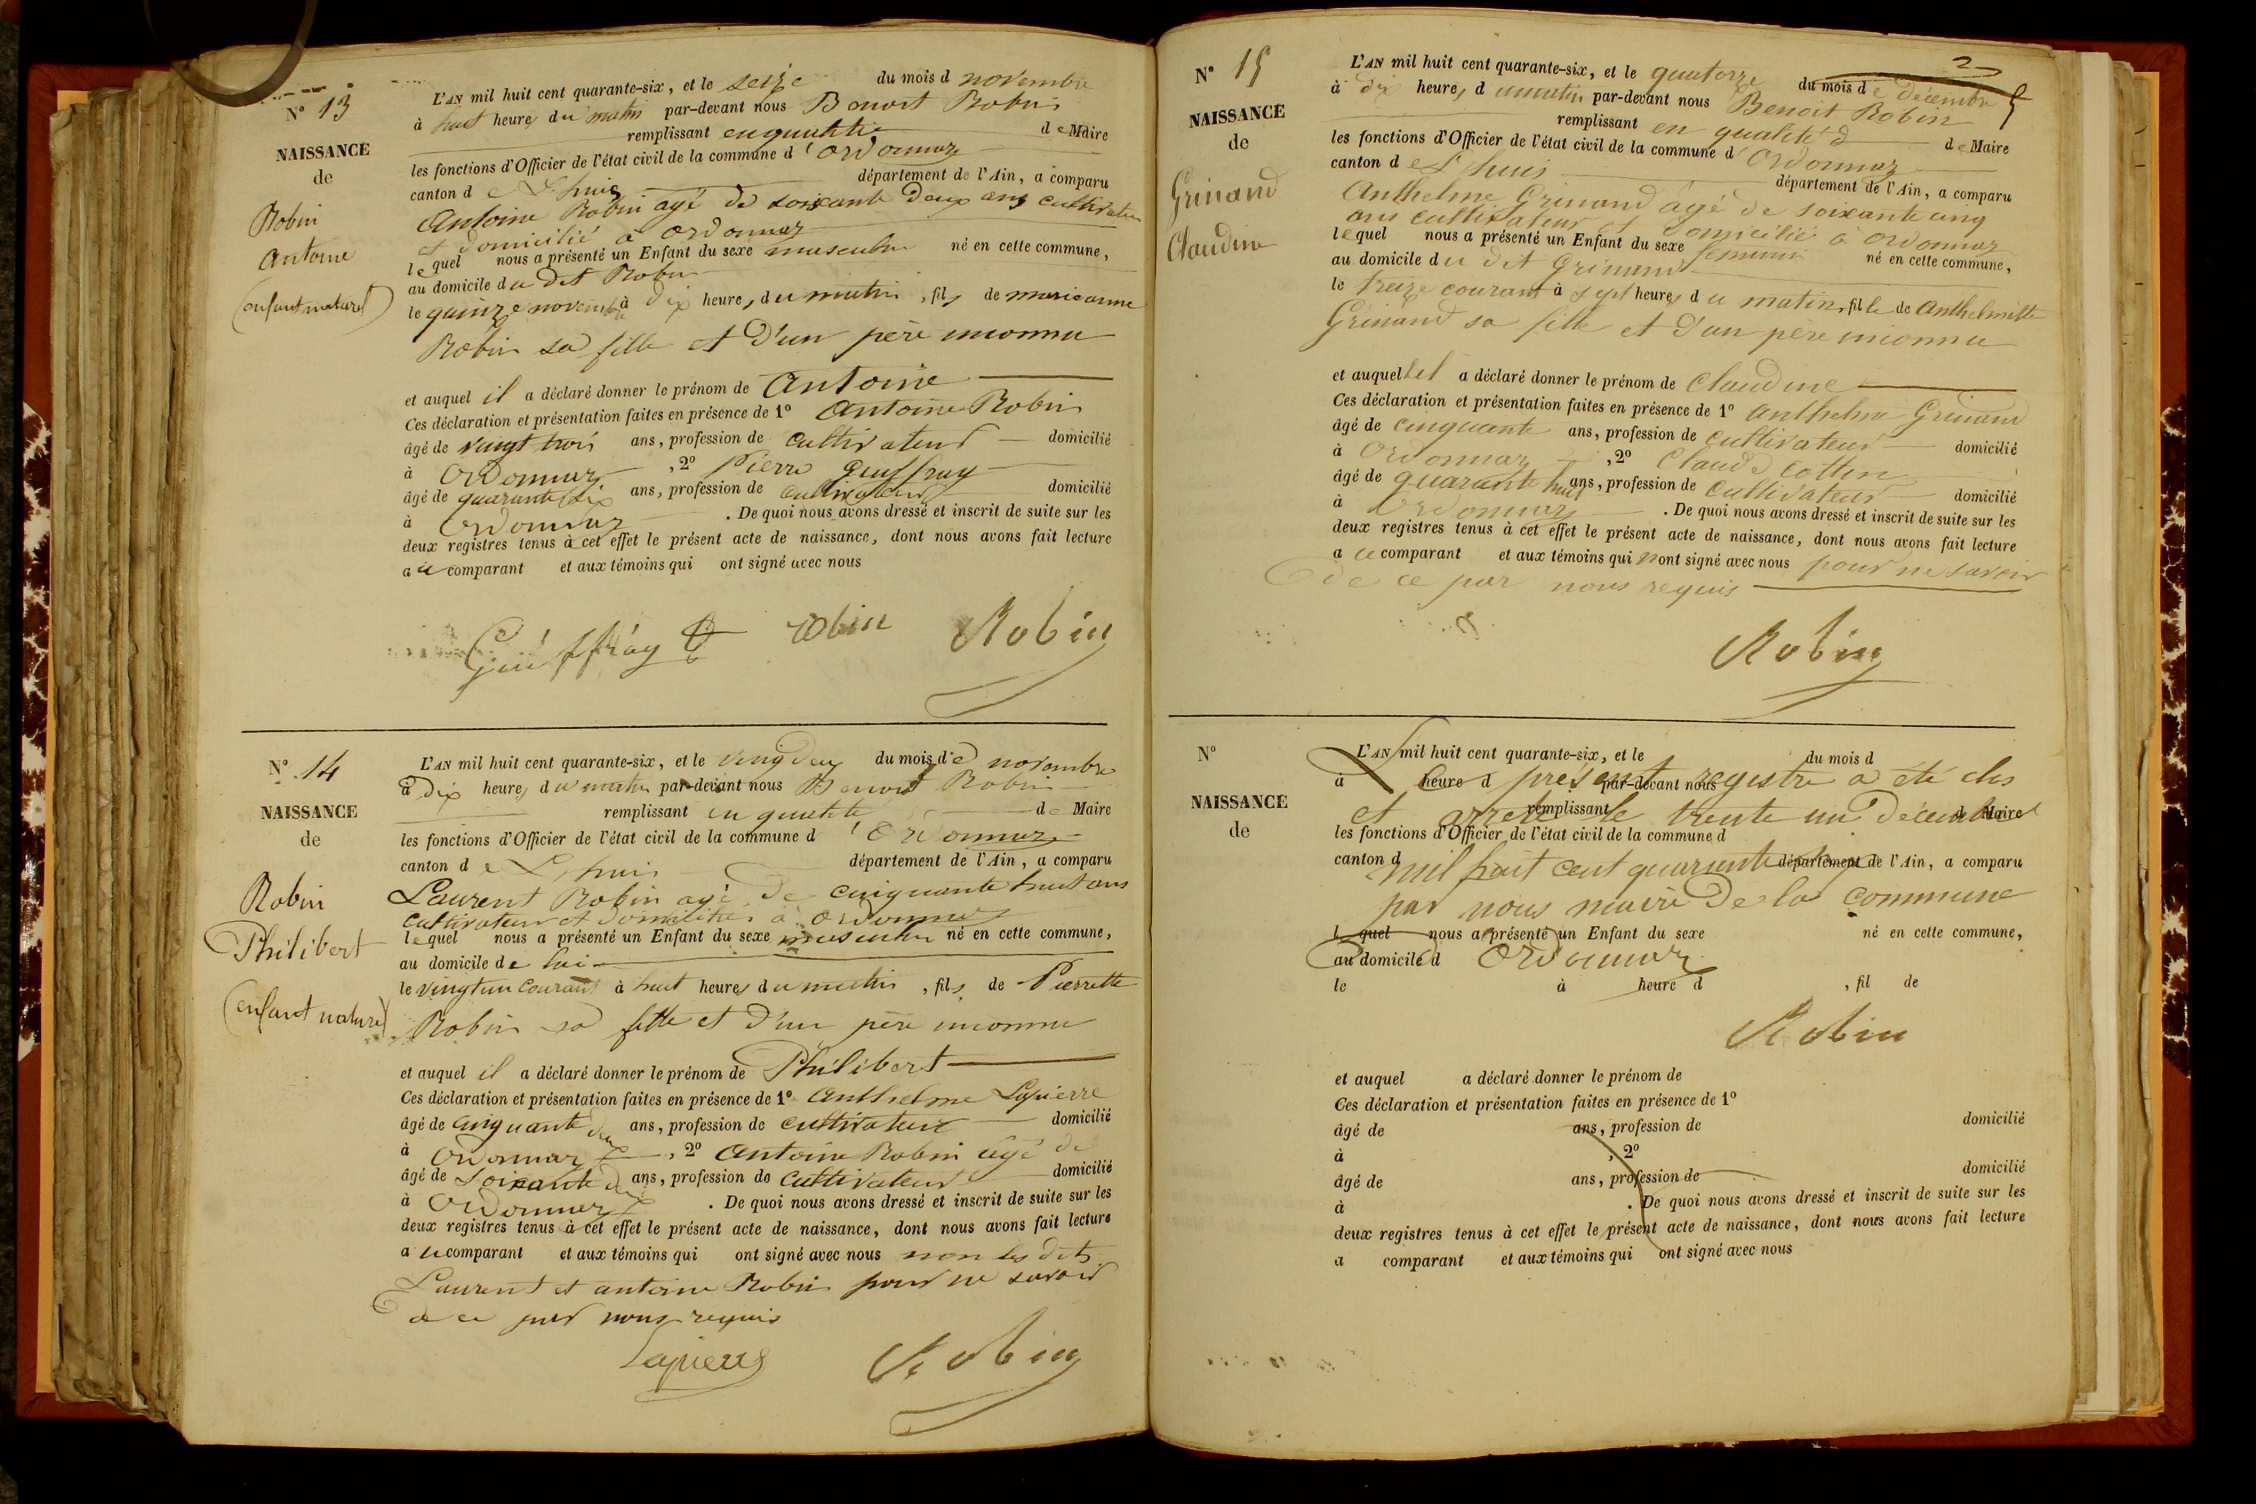 N° 13
NAISSANCE
de
Robin
Antoine
(enfant naturel)
L'AN mil huit cent quarante-six, et le seize du mois d novembre
à huit heures du matin par-devant nous Benoit Robin
remplissant en qualité de Maire
les fonctions d'Officier de l'état civil de la commune d'Ordonnaz
canton de Lhuis département de l'Ain, a comparu
Antoine Robin agé de soixante deux ans cultivateur
et domicilié à Ordonnaz
lequel nous a présenté un Enfant du sexe masculin né en cette commune,
au domicile du dit Robin
le quinze novembre à dix heures du matin, fils de marieanne
Robin sa fille et d'un père inconnu
et auquel il a déclaré donner le prénom de Antoine
Ces déclaration et présentation faites en présence de 1° Antoine Robin
âgé de vingt trois ans, profession de cultivateur domicilié
à Ordonnaz, 2° Pierre Gueffray
âgé de quarante six ans, profession de cultivateur domicilié
à Ordonnaz. De quoi nous avons dressé et inscrit de suite sur les
deux registres tenus à cet effet le présent acte de naissance, dont nous avons fait lecture
a ce comparant et aux témoins qui ont signé avec nous
Guéffray Robin Robin
N° 14
NAISSANCE
de
Robin
Philibert
(enfant naturel)
L'AN mil huit cent quarante-six, et le vingt deux du mois de novembre
à dix heures du matin par-devant nous Benoit Robin
remplissant en qualité de Maire
les fonctions d'Officier de l'état civil de la commune d'Ordonnaz
canton de Lhuis département de l'Ain, a comparu
Laurent Robin agé de cinquante huit ans
cultivateur et domicilié à Ordonnaz
lequel nous a présenté un Enfant du sexe masculin né en cette commune,
au domicile de lui
le vingt un courant à huit heures du matin, fils de Pierrette
Robin sa fille et d'un père inconnu
et auquel il a déclaré donner le prénom de Philibert
Ces déclaration et présentation faites en présence de 1° Anthelme Lapierre
âgé de cinquante deux ans, profession de cultivateur domicilié
à Ordonnaz, 2° Antoine Robin âgé de
âgé de soixante deux ans, profession de cultivateur domicilié
à Ordonnaz. De quoi nous avons dressé et inscrit de suite sur les
deux registres tenus à cet effet le présent acte de naissance, dont nous avons fait lecture
a ce comparant et aux témoins qui ont signé avec nous non les dits
Laurent et antoine Robin pour ne savoir
de ce par nous requis
Lapierre Robin
2
5
N° 15
NAISSANCE
de
Grinand
Claudine
L'AN mil huit cent quarante-six, et le quatorze du mois de décembre
à dix heures d umatin par-devant nous Benoit Robin
remplissant en qualité d de Maire
les fonctions d'Officier de l'état civil de la commune d'Ordonnaz
canton de Lhuis département de l'Ain, a comparu
Anthelme Grinand âgé de soixante cinq
ans cultivateur et domicilié à Ordonnaz
lequel nous a présenté un Enfant du sexe feminin né en cette commune,
au domicile du dit Grinand
le treize courant à sept heures du matin, fille de Anthelmette
Grinand sa fille et d'un père inconnu
et auquel il a déclaré donner le prénom de Claudine
Ces déclaration et présentation faites en présence de 1° Anthelme Grinand
âgé de cinquante ans, profession de cultivateur domicilié
à Ordonnaz, 2° Claude Cottin
âgé de quarante huit ans, profession de cultivateur domicilié
à Ordonnaz. De quoi nous avons dressé et inscrit de suite sur les
deux registres tenus à cet effet le présent acte de naissance, dont nous avons fait lecture
a ce comparant et aux témoins qui nont signé avec nous pour ne savoir
de ce par nous requis
Robin
N°
NAISSANCE
de
L'AN mil huit cent quarante-six, et le du mois d
Le présent registre a été clos
à heure d par-devant nous
et arreté le trente un Décembre
remplissant d Maire
les fonctions d'Officier de l'état civil de la commune d
mil huit cent quarante six
canton d département de l'Ain, a comparu
par nous maire de la commune
l quel nous a présenté un Enfant du sexe né en cette commune,
au domicile d
d'Ordonnaz
le à heure d, fil de
Robin
et auquel a déclaré donner le prénom de
Ces déclaration et présentation faites en présence de 1°
âgé de ans, profession de domicilié
à, 2°
âgé de ans, profession de domicilié
à. De quoi nous avons dressé et inscrit de suite sur les
deux registres tenus à cet effet le présent acte de naissance, dont nous avons fait lecture
a comparant et aux témoins qui ont signé avec nous